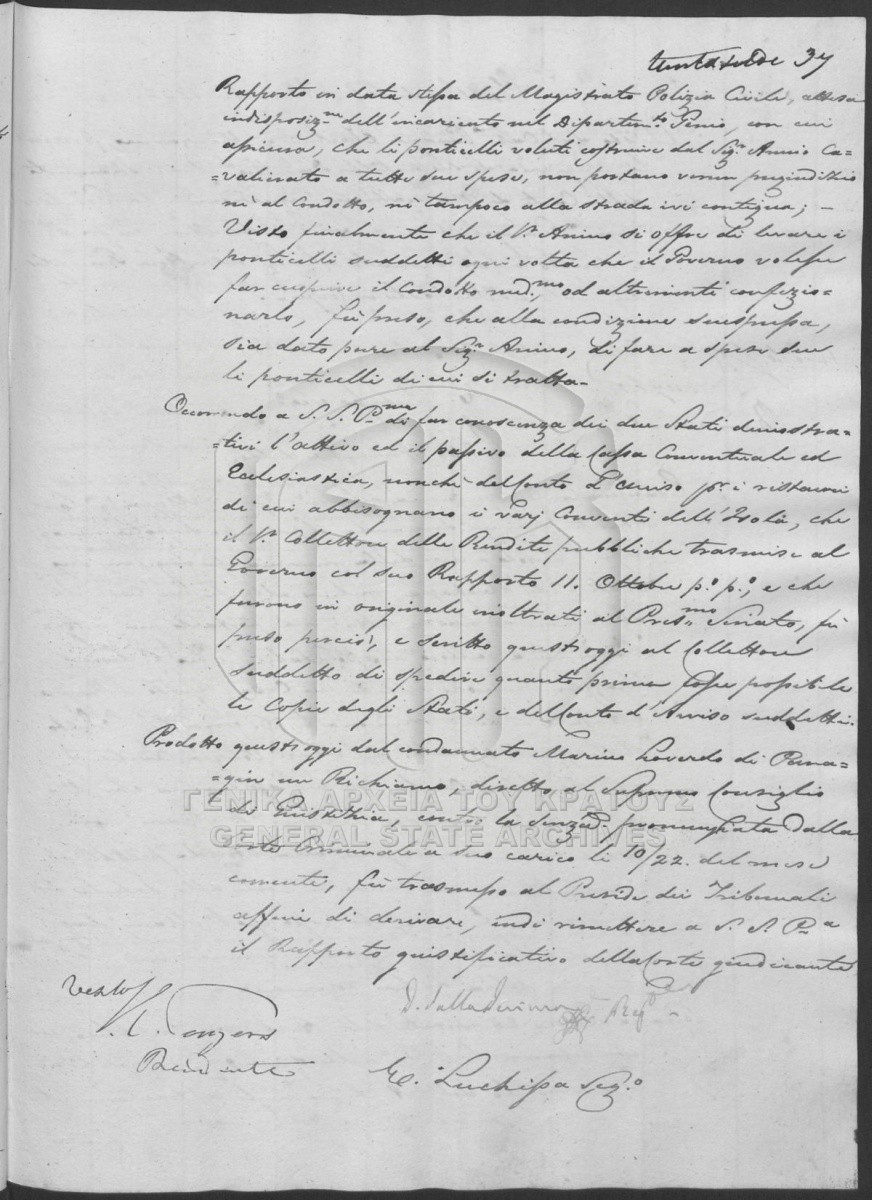 trentasette 37
Rapporto in data stessa del Magistrato Polizia Civile, attesa
indisposiz.ne dell'incaricato nel Dipartim.to Genio, con cui
assicura, che li ponticelli voluti costruire dal Sig.r Anino Ca-
=valierato a tutte sue spese, non portano verun pregiudizio
nè al Condotto, nè tampoco alla strada ivi contigua; –
Visto finalmente che il S.r Anino si offre di levare i
ponticelli suddetti ogni volta che il Governo volesse
far cuoprire il Condotto med.mo, od altrimenti confezio-
narlo, fù preso, che alla condizione suespressa,
sia dato pure al Sig.r Anino, di fare a spese sue
li ponticelli di cui si tratta.
Occorrendo a S. S. P.ma di far conoscenza dei due Stati dimostra-
=tivi l'attivo ed il passivo della Cassa Conventuale ed
Ecclesiastica, nonchè del Conto d'avviso p.r i ristauri
di cui abbisognano i varj Conventi dell'Isola, che
il S.r Collettore delle Rendite pubbliche trasmise al
Governo col suo Rapporto 11. Ottobre p.o p.o, e che
furono in originale inoltrati al Pres.mo Senato, fù
preso perciò, e scritto quest'oggi al Collettore
suddetto di spedire quanto prima fosse possibile
le Copie degli Stati, e del Conto d'Avviso suddetti.
Prodotto quest'oggi dal condannato Marino Loverdo di Pana-
=gin un Richiamo, diretto al Supremo Consiglio
di Giustizia, contro la Senza pronunziata dalla
Corte Criminale a suo carico li 10/22. del mese
corrente, fù trasmesso al Preside dei Tribunali
affine di derivare, indi rimettere a S. S. P.ma
il Rapporto giustificativo della Corte giudicante
Visto
Presidente
D. Dalladecima Regg.e
E. Luchissa Seg.o
ΓΕΝΙΚΑ ΑΡΧΕΙΑ ΤΟΥ ΚΡΑΤΟΥΣ
GENERAL STATE ARCHIVES